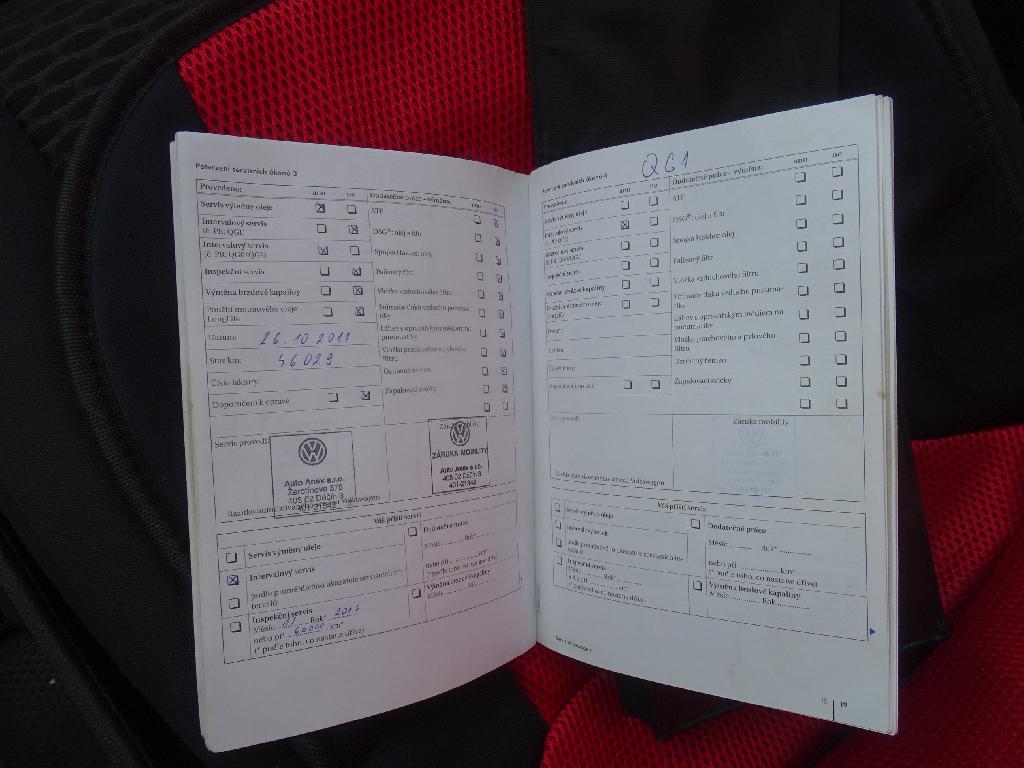 Potvrzení servisních úkonů 3
Provedeno: ano ne Dodatečné práce - výměna: ano ne
Servis výměny oleje
ATF
Intervalový servis
(č. PR: QG1)
DSG®: olej a filtr
Intervalový servis
(č. PR: QG0/QG2)
Spojka Haldex: olej
Inspekční servis
Palivový filtr
Výměna brzdové kapaliny
Vložka vzduchového filtru
Použití motorového oleje
LongLife
Snímače tlaku vzduchu pneuma-
tiky
Datum: 26.10.2011
Láhev s opravářským médiem na
pneumatiky
Stav km: 46029
Vložka prachového a pylového
filtru
Číslo faktury:
Ozubený řemen
Doporučení k opravě
Zapalovací svíčky
Servis provedl:
Auto Anex s.r.o.
Žerotínova 376
405 02 Děčín 3
401-21342
Razítko autorizovaného servisu Volkswagen
Záruka mobility
ZÁRUKA MOBILITY
Auto Anex s.r.o.
405 02 Děčín 3
401-21342
Váš příští servis
Servis výměny oleje
Intervalový servis
podle proměnlivého ukazatele servisních in-
tervalů
Inspekční servis
Měsíc Rok*
nebo při 60000 km*
(* podle toho, co nastane dříve)
Dodatečné práce
Měsíc Rok*
nebo při km*
(* podle toho, co nastane dříve)
Výměna brzdové kapaliny
Měsíc Rok
QG1
Potvrzení servisních úkonů 4
Provedeno: ano ne Dodatečné práce - výměna: ano ne
Servis výměny oleje
ATF
Intervalový servis
(č. PR: QG1)
DSG®: olej a filtr
Intervalový servis
(č. PR: QG0/QG2)
Spojka Haldex: olej
Inspekční servis
Palivový filtr
Výměna brzdové kapaliny
Vložka vzduchového filtru
Použití motorového oleje
LongLife
Snímače tlaku vzduchu pneuma-
tiky
Datum:
Láhev s opravářským médiem na
pneumatiky
Stav km:
Vložka prachového a pylového
filtru
Číslo faktury:
Ozubený řemen
Doporučení k opravě
Zapalovací svíčky
Servis provedl:
Razítko autorizovaného servisu Volkswagen
Záruka mobility
Váš příští servis
Servis výměny oleje
Intervalový servis
podle proměnlivého ukazatele servisních in-
tervalů
Inspekční servis
Měsíc Rok*
nebo při km*
(* podle toho, co nastane dříve)
Dodatečné práce
Měsíc Rok*
nebo při km*
(* podle toho, co nastane dříve)
Výměna brzdové kapaliny
Měsíc Rok
Servis Volkswagen
18 19